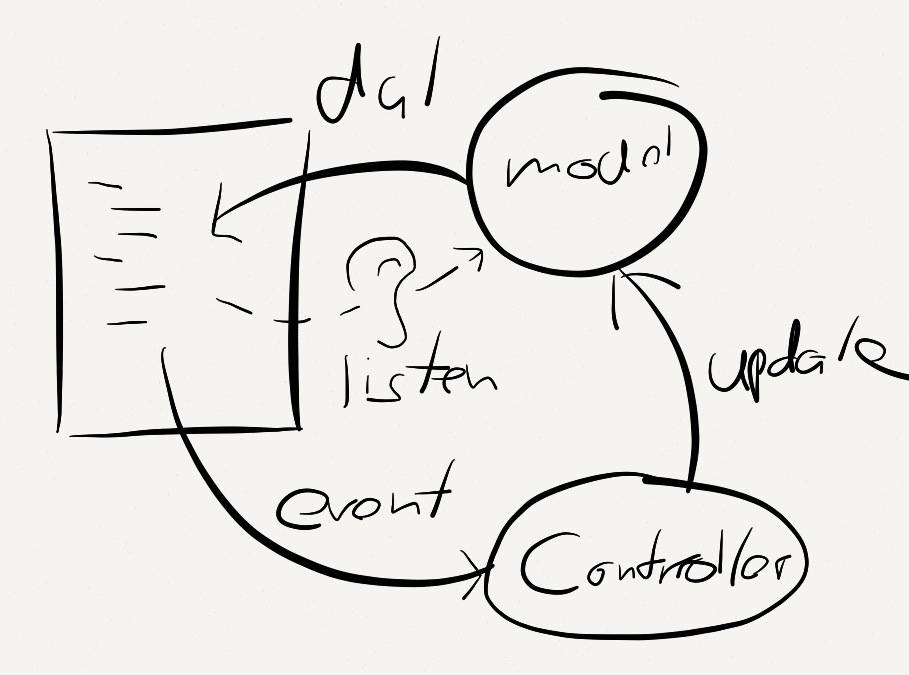 dal
model
listen
update
event
Controller